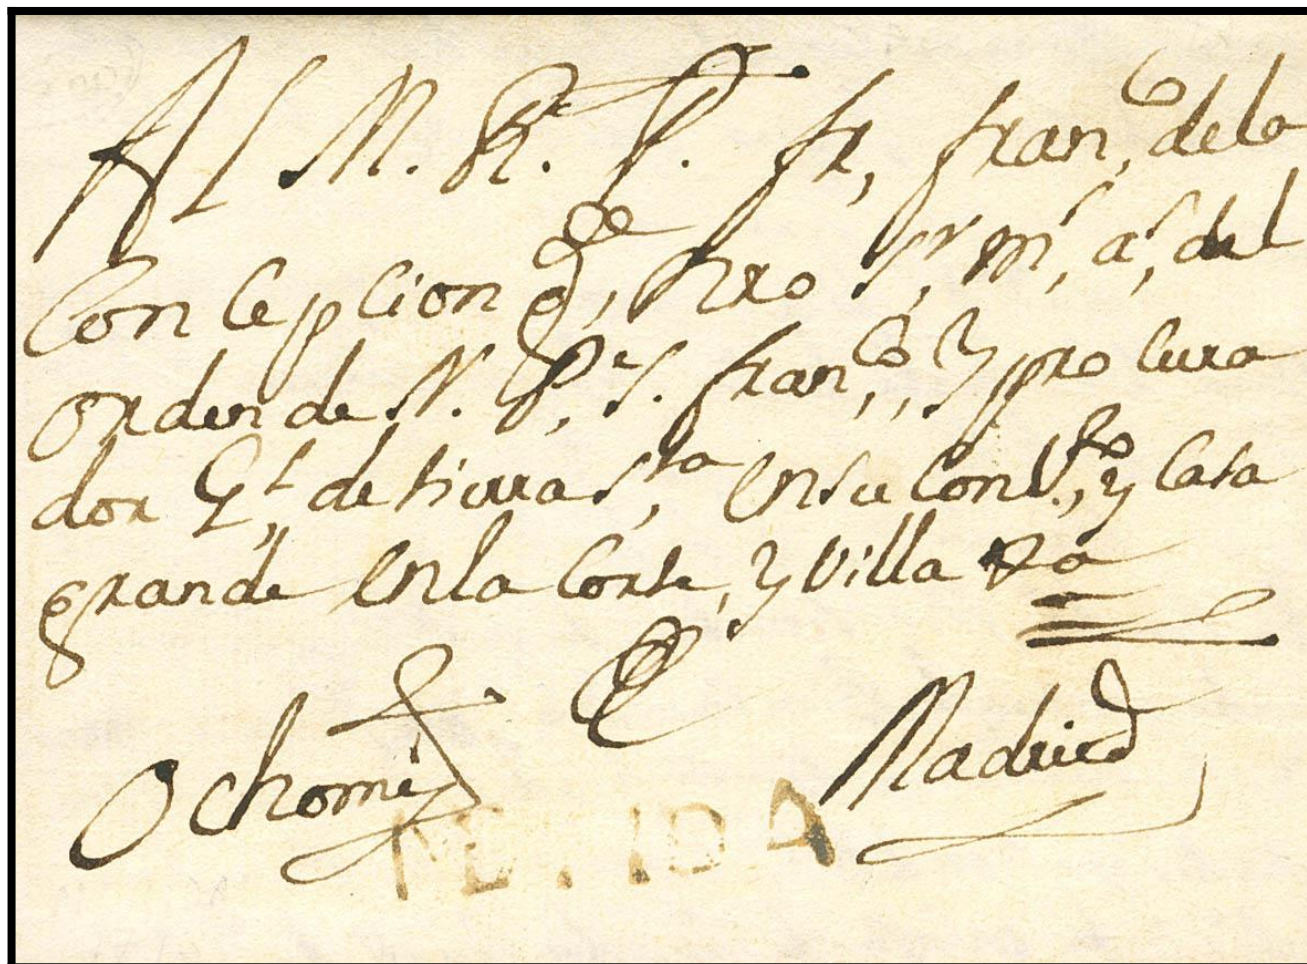 Al M. R. P. fr, fran,co de la
Concepcion, gde, Nro Sr, ms, as, del
orden de N. Pe, S. franco,, y procura
dor Gl, de tierra Sta, en su Convto, y Casa
grande en la Corte, y Villa
Ochomil Madrid